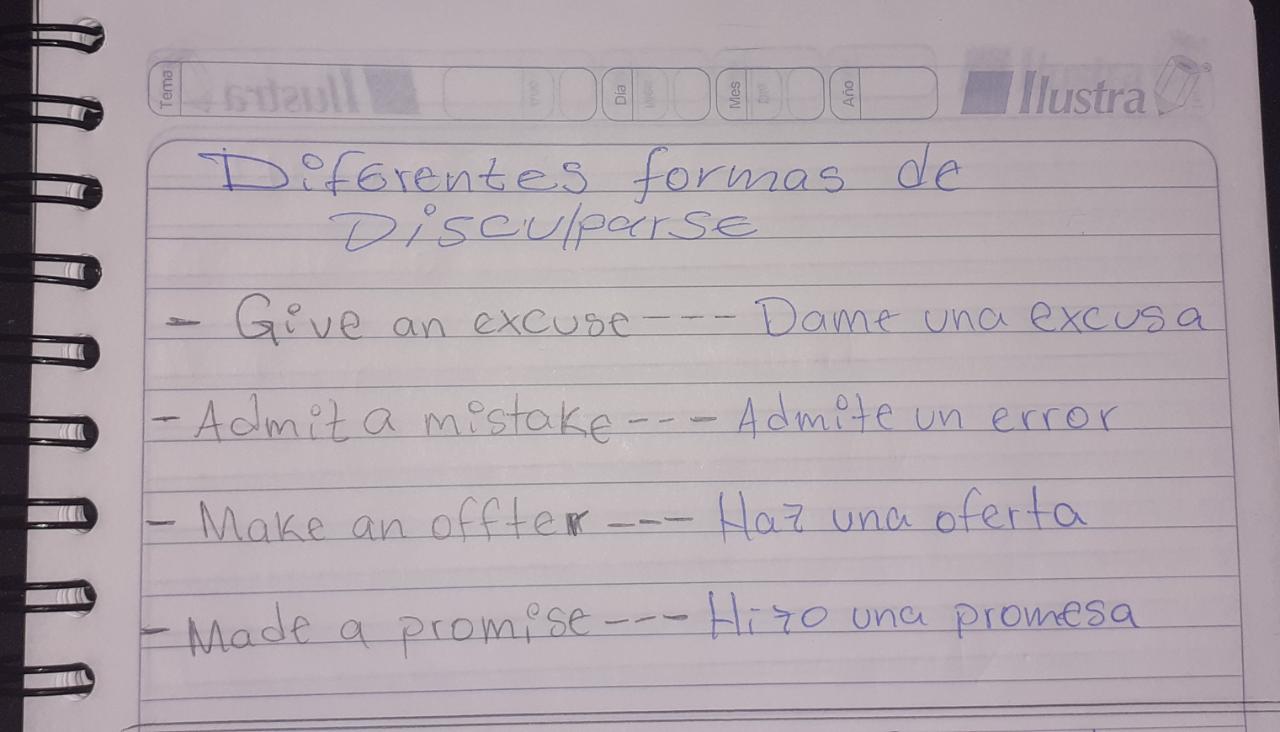 Tema Día Mes Año Ilustra
Diferentes formas de
Disculparse
- Give an excuse --- Dame una excusa
- Admit a mistake --- Admite un error
- Make an offter --- Haz una oferta
- Made a promise --- Hizo una promesa